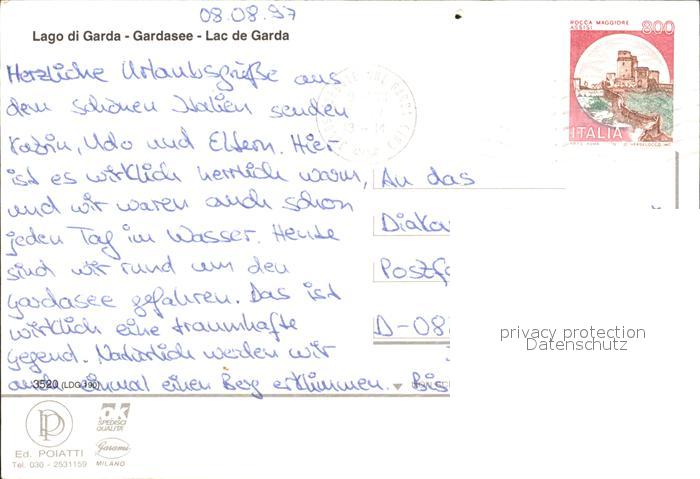 08.08.97
Lago di Garda - Gardasee - Lac de Garda
ROCCA MAGGIORE
ASSISI
800
ITALIA
Herzliche Urlaubsgrüße aus
dem schönen Italien senden
Katrin, Udo und Eltern. Hier
ist es wirklich herrlich warm,
und wir waren auch schon
jeden Tag im Wasser. Heute
sind wir rund um den
Gardasee gefahren. Das ist
wirklich eine traumhafte
Gegend. Natürlich werden wir
auch einmal einen Berg erklimmen. Bis
An das
Diako
Postf
D-08
privacy protection
Datenschutz
3520 (LDG 190)
Ed. POIATTI
Tel. 030 - 2531159
OK
SPEDISCI
QUALITÀ
Garami
MILANO